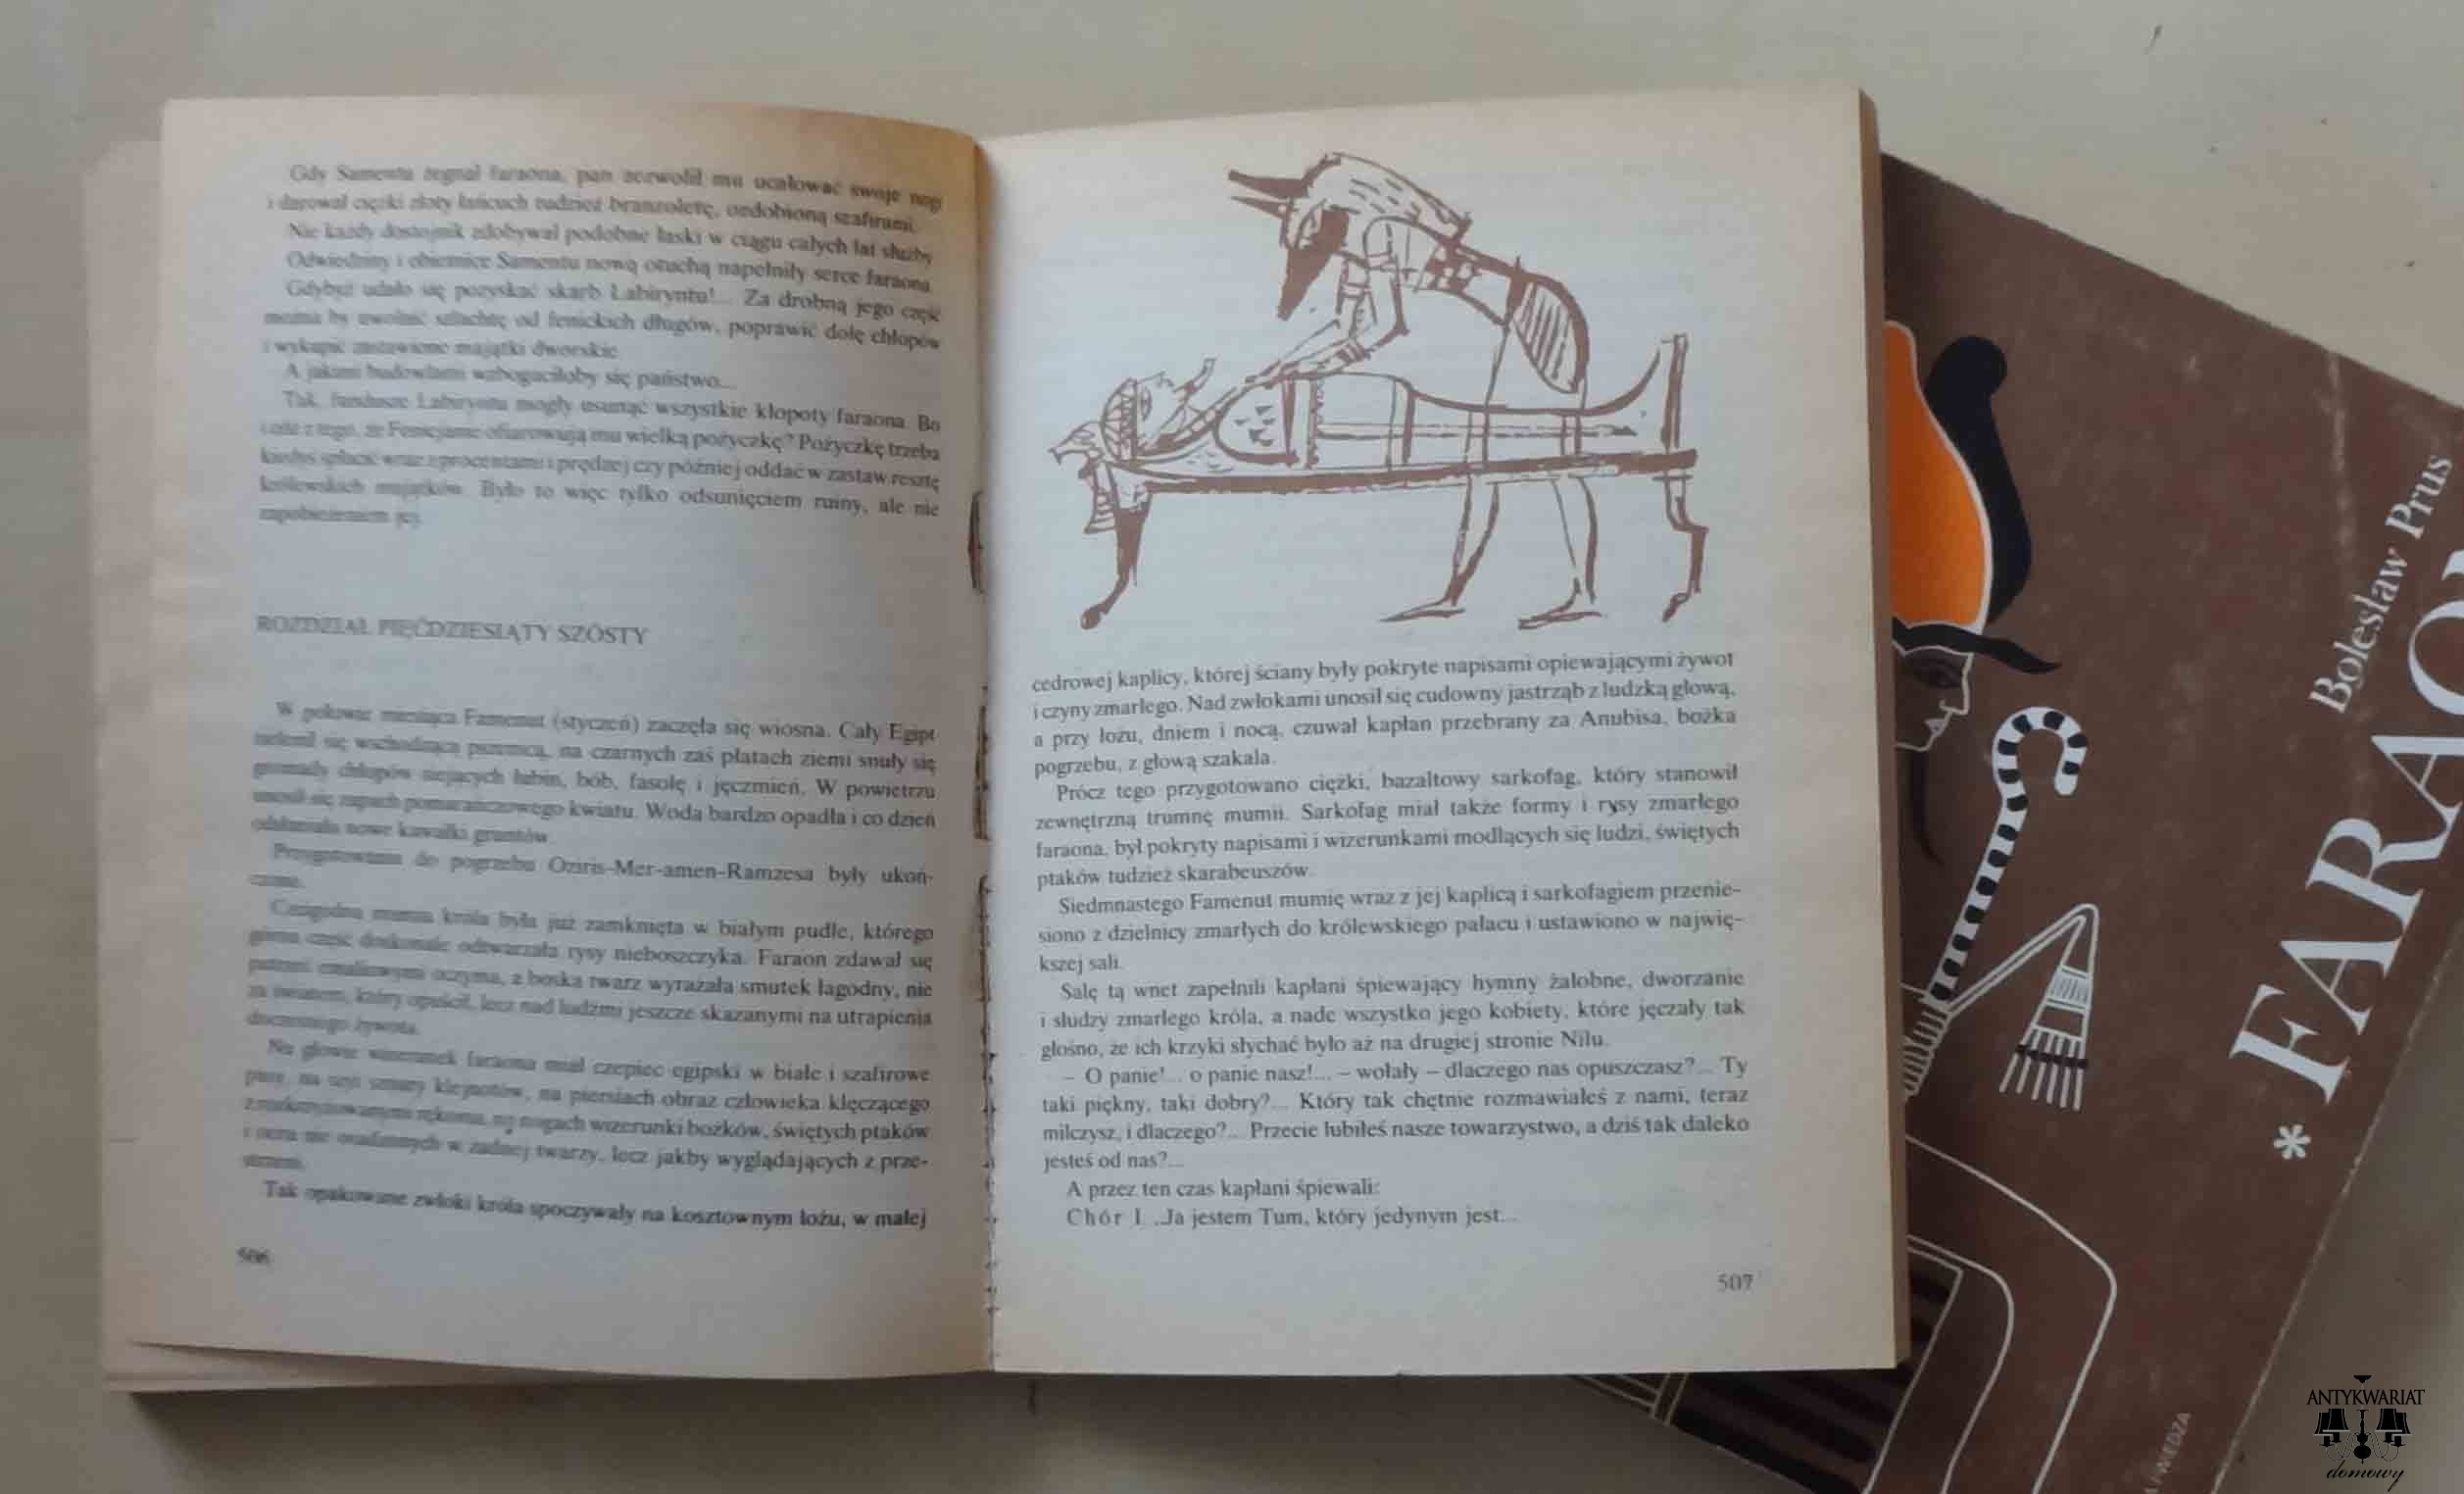 Gdy Samentu żegnał faraona, pan zezwolił mu ucałować swoje nogi
i darował ciężki złoty łańcuch tudzież bransoletę, ozdobioną szafirami.
Nie każdy dostojnik zdobywał podobne łaski w ciągu całych lat służby.
Odwiedziny i obietnice Samentu nową otuchą napełniły serce faraona.
Gdybyż udało się pozyskać skarb Labiryntu!... Za drobną jego część
można by uwolnić szlachtę od fenickich długów, poprawić dolę chłopów
i wykupić zastawione majątki dworskie.
A jakimi budowlami wzbogaciłoby się państwo...
Tak, fundusze Labiryntu mogły usunąć wszystkie kłopoty faraona. Bo
i cóż z tego, że Fenicjanie ofiarowują mu wielką pożyczkę? Pożyczkę trzeba
kiedyś spłacić wraz z procentami i prędzej czy później oddać w zastaw resztę
królewskich majątków. Było to więc tylko odsunięciem ruiny, ale nie
zapobieżeniem jej.
ROZDZIAŁ PIĘĆDZIESIĄTY SZÓSTY
W połowie miesiąca Famenut (styczeń) zaczęła się wiosna. Cały Egipt
zielenił się wschodzącą pszenicą, na czarnych zaś płatach ziemi snuły się
gromady chłopów siejących łubin, bób, fasolę i jęczmień. W powietrzu
unosił się zapach pomarańczowego kwiatu. Woda bardzo opadła i co dzień
odsłaniała nowe kawałki gruntów.
Przygotowania do pogrzebu Oziris-Mer-amen-Ramzesa były ukoń-
czone.
Czcigodna mumia króla była już zamknięta w białym pudle, którego
górna część doskonale odtwarzała rysy nieboszczyka. Faraon zdawał się
patrzeć emaliowymi oczyma, a boska twarz wyrażała smutek łagodny, nie
za światem, który opuścił, lecz nad ludźmi jeszcze skazanymi na utrapienia
doczesnego żywota.
Na głowie wizerunek faraona miał czepiec egipski w białe i szafirowe
pasy, na szyi sznury klejnotów, na piersiach obraz człowieka klęczącego
z rozkrzyżowanymi rękoma, na nogach wizerunki bożków, świętych ptaków
i oczu nie osadzonych w żadnej twarzy, lecz jakby wyglądających z prze-
strzeni.
Tak opakowane zwłoki króla spoczywały na kosztownym łożu, w małej
506
cedrowej kaplicy, której ściany były pokryte napisami opiewającymi żywot
i czyny zmarłego. Nad zwłokami unosił się cudowny jastrząb z ludzką głową,
a przy łożu, dniem i nocą, czuwał kapłan przebrany za Anubisa, bożka
pogrzebu, z głową szakala.
Prócz tego przygotowano ciężki, bazaltowy sarkofag, który stanowił
zewnętrzną trumnę mumii. Sarkofag miał także formy i rysy zmarłego
faraona, był pokryty napisami i wizerunkami modlących się ludzi, świętych
ptaków tudzież skarabeuszów.
Siedmnastego Famenut mumię wraz z jej kaplicą i sarkofagiem przenie-
siono z dzielnicy zmarłych do królewskiego pałacu i ustawiono w najwię-
kszej sali.
Salę tą wnet zapełnili kapłani śpiewający hymny żałobne, dworzanie
i słudzy zmarłego króla, a nade wszystko jego kobiety, które jęczały tak
głośno, że ich krzyki słychać było aż na drugiej stronie Nilu.
– O panie!... o panie nasz!... – wołały – dlaczego nas opuszczasz?... Ty
taki piękny, taki dobry?... Który tak chętnie rozmawiałeś z nami, teraz
milczysz, i dlaczego?... Przecie lubiłeś nasze towarzystwo, a dziś tak daleko
jesteś od nas?...
A przez ten czas kapłani śpiewali:
Chór I. „Ja jestem Tum, który jedynym jest...
507
Bolesław Prus
FARAON
*
WIEDZA
ANTYKWARIAT
domowy